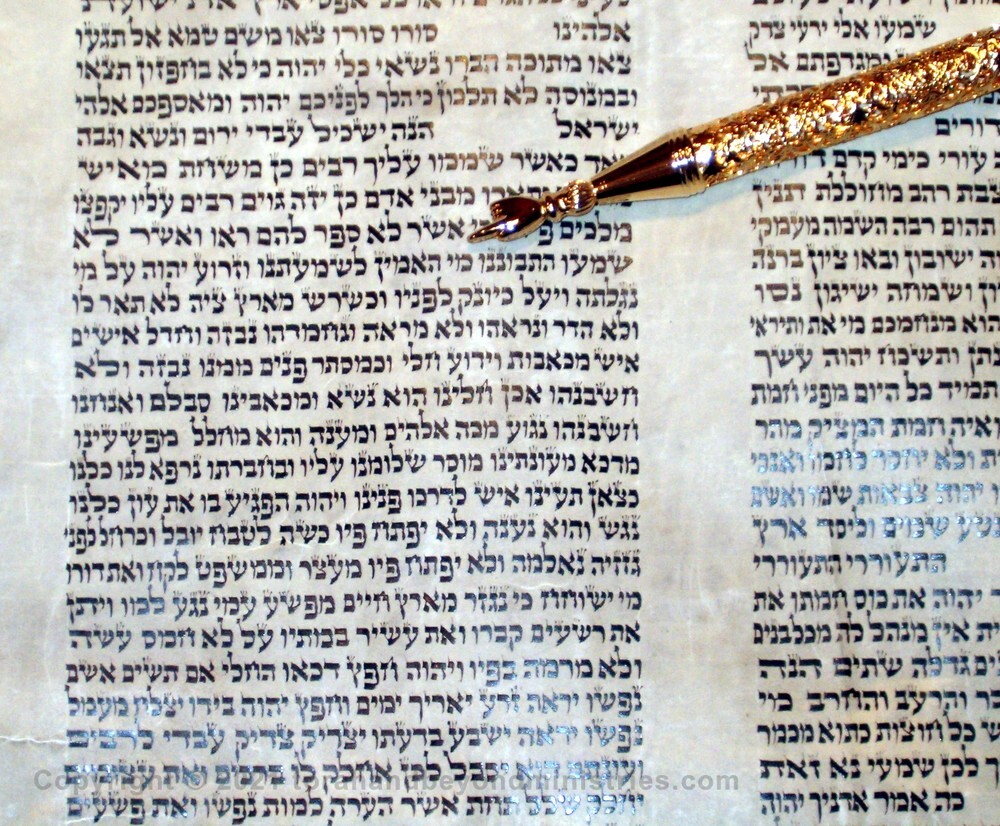 שמעו אלי ידעי צדק
ומגדפתם אל
דורים
עורי כימי קדם
רהב מחוללת תנין
תהום רבה השמה מעמקי
ישובון ובאו ציון ברנה
ושמחה ישיגון נסו
הוא מנחמכם מי את ותיראי
ותשכח יהוה עשך
תמיד כל היום מפני חמת
ואיה חמת המציק מהר
ולא יחסר לחמו ואנכי
יהוה צבאות שמו ואשם
שמים וליסד ארץ
התעוררי התעוררי
יהוה את כוס חמתו את
אין מנהל לה מכל בנים
גדלה שתים הנה
והרעב והחרב מי
כל חוצות כתוא מכמר
לכן שמעי נא זאת
כה אמר אדניך יהוה
אלהינו סורו סורו צאו משם טמא אל תגעו
צאו מתוכה הברו נשאי כלי יהוה כי לא בחפזון תצאו
ובמנוסה לא תלכון כי הלך לפניכם יהוה ומאספכם אלהי
ישראל הנה ישכיל עבדי ירום ונשא וגבה
מאד כאשר שממו עליך רבים כן משחת מאיש
מבני אדם כן יזה גוים רבים עליו יקפצו
מלכים אשר לא ספר להם ראו ואשר לא
שמעו התבוננו מי האמין לשמעתנו וזרוע יהוה על מי
נגלתה ויעל כיונק לפניו וכשרש מארץ ציה לא תאר לו
ולא הדר ונראהו ולא מראה ונחמדהו נבזה וחדל אישים
איש מכאבות וידוע חלי וכמסתר פנים ממנו נבזה ולא
חשבנהו אכן חלינו הוא נשא ומכאבינו סבלם ואנחנו
חשבנהו נגוע מכה אלהים ומענה והוא מחלל מפשעינו
מדכא מעונתינו מוסר שלומנו עליו ובחברתו נרפא לנו כלנו
כצאן תעינו איש לדרכו פנינו ויהוה הפגיע בו את עון כלנו
נגש והוא נענה ולא יפתח פיו כשה לטבח יובל וכרחל לפני
גזזיה נאלמה ולא יפתח פיו מעצר וממשפט לקח ואת דורו
מי ישוחח כי נגזר מארץ חיים מפשע עמי נגע למו ויתן
את רשעים קברו ואת עשיר במתיו על לא חמס עשה
ולא מרמה בפיו ויהוה חפץ דכאו החלי אם תשים אשם
נפשו יראה זרע יאריך ימים וחפץ יהוה בידו יצלח מעמל
נפשו יראה ישבע בדעתו יצדיק צדיק עבדי לרבים
ועונתם הוא יסבל לכן אחלק לו ברבים ואת עצומים
יחלק שלל תחת אשר הערה למות נפשו ואת פשעים
Copyright © 2021 torahandbeyondministries.com